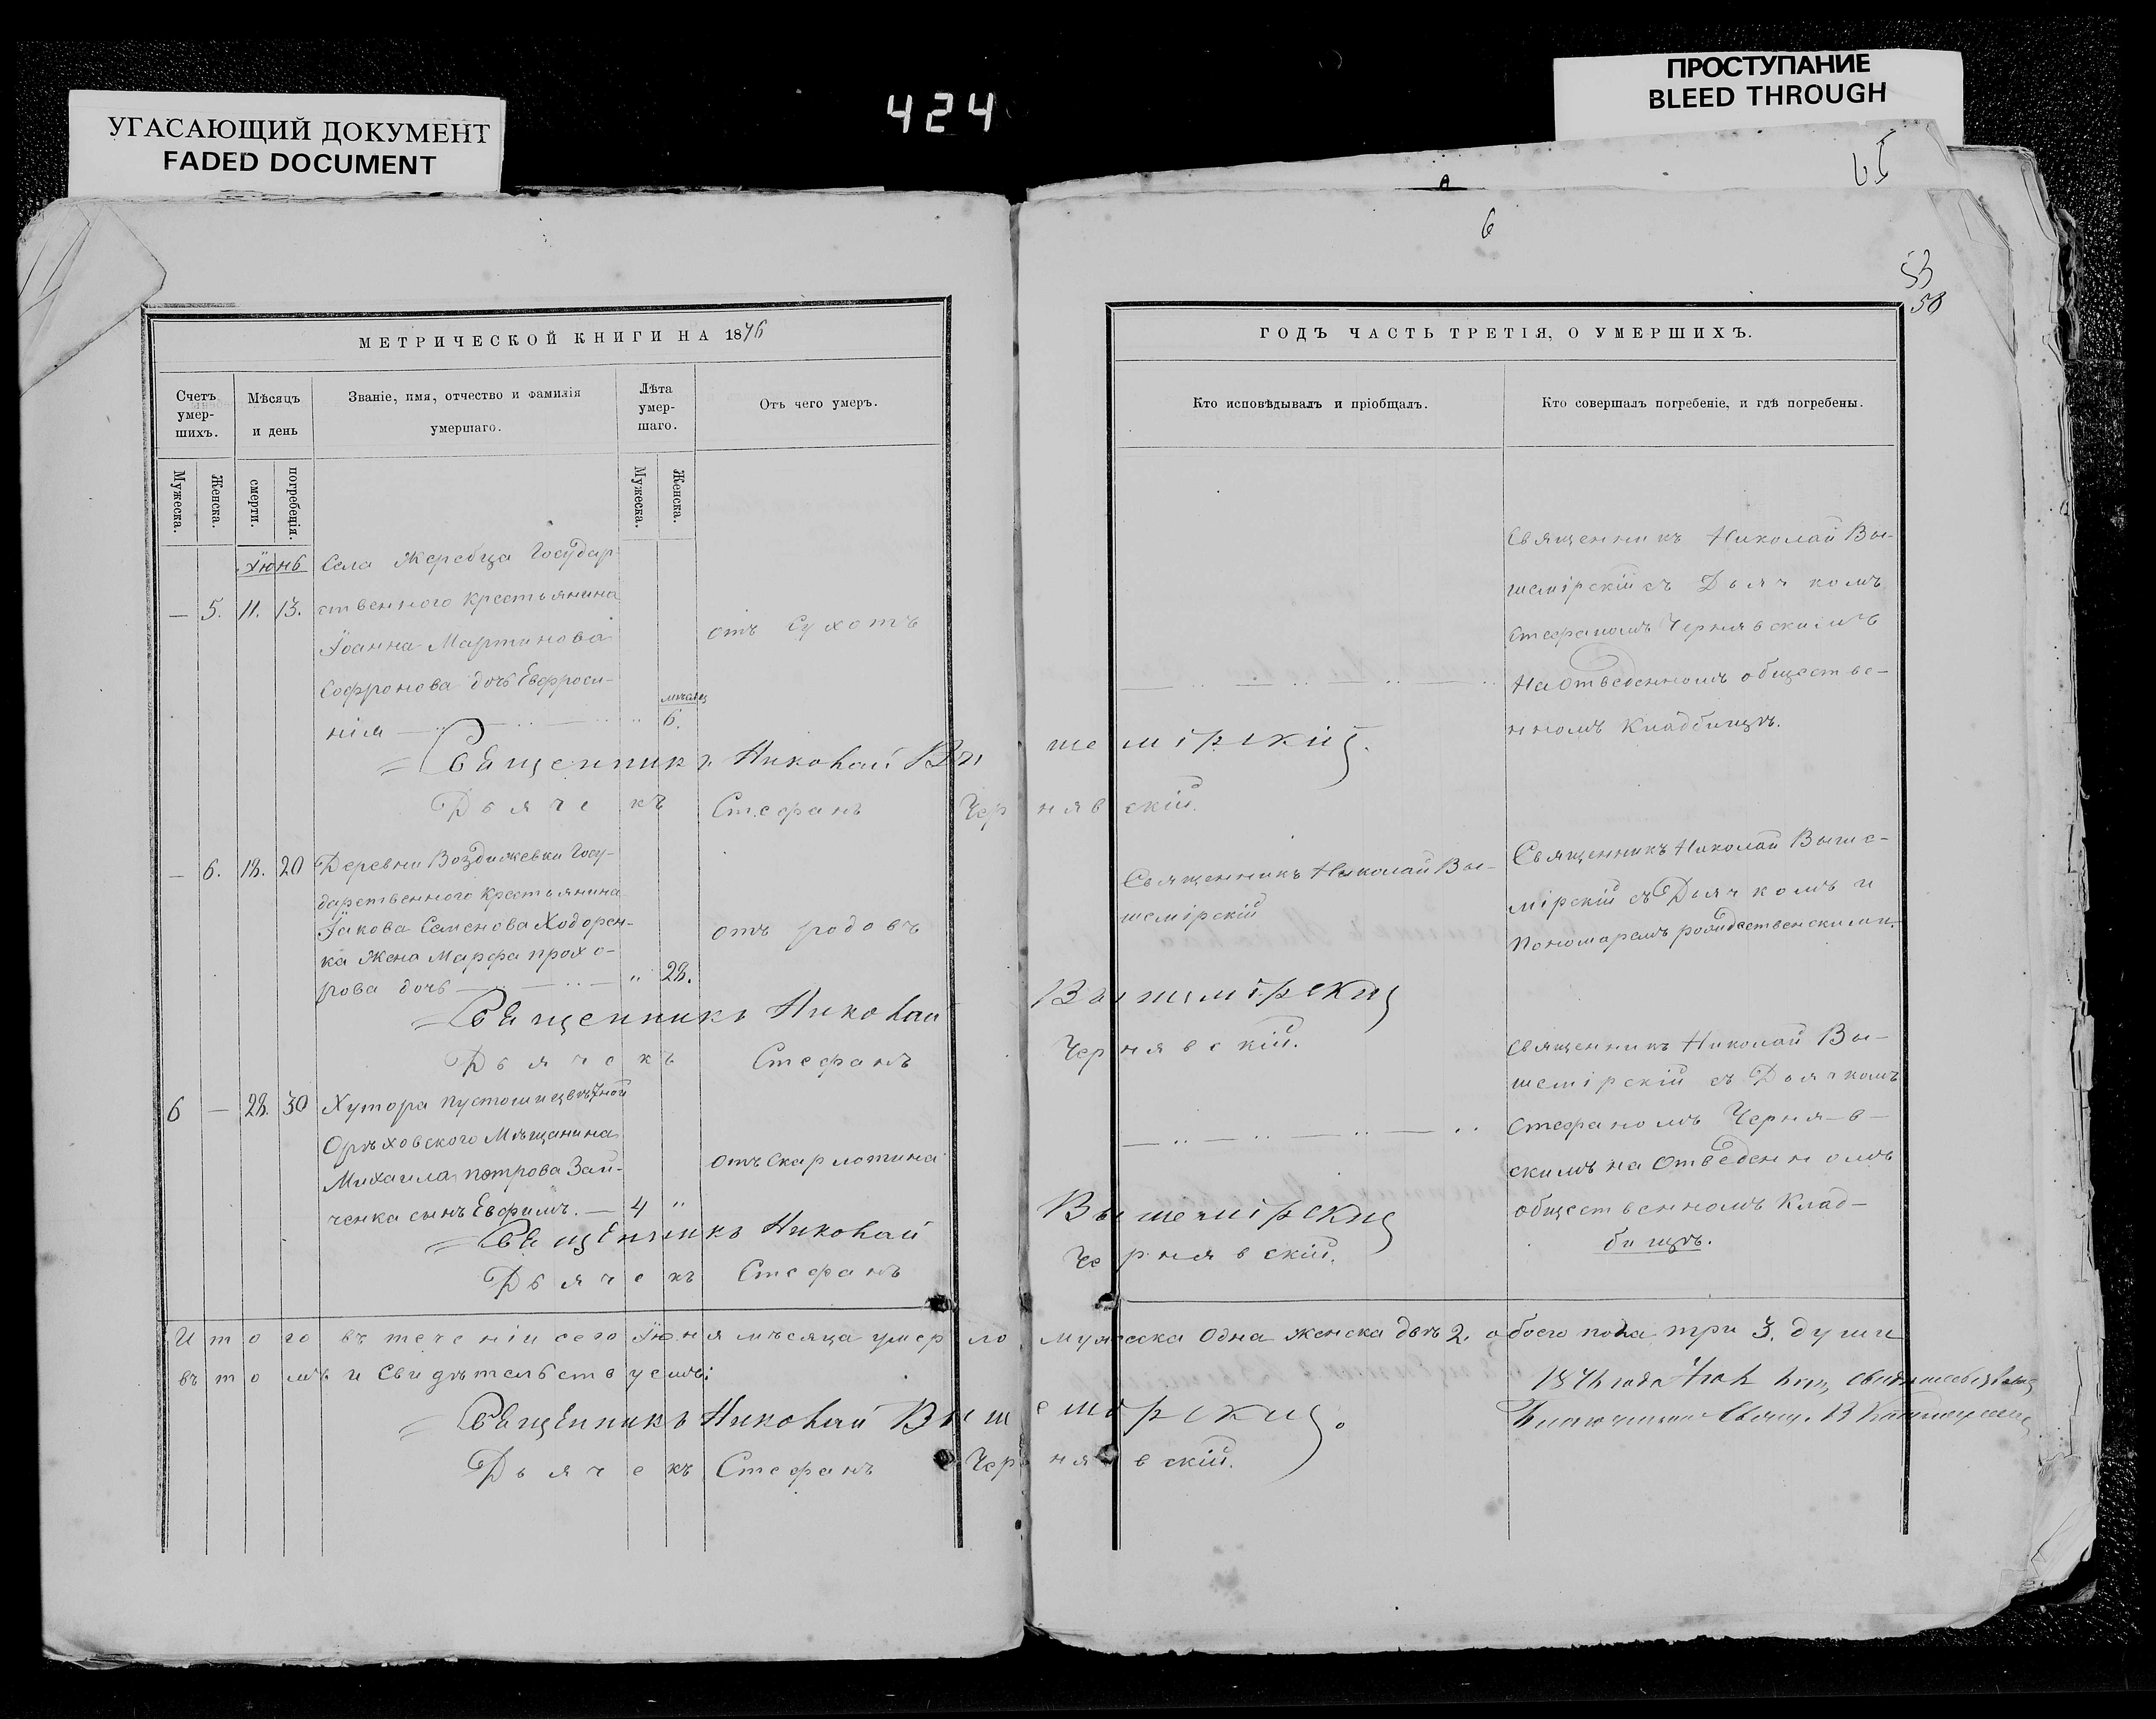 УГАСАЮЩИЙ ДОКУМЕНТ
FADED DOCUMENT
424
ПРОСТУПАНИЕ
BLEED THROUGH
6
53
58
МЕТРИЧЕСКОЙ КНИГИ НА 1876
Счетъ умер-шихъ.
Мѣсяцъ и день
Званіе, имя, отчество и фамилія умершаго.
Лѣта умер-шаго.
Отъ чего умеръ.
Мужеска.
Женска.
смерти.
погребенія.
Мужеска.
Женска.
Іюнь
Села Жеребца Государ
— 5. 11. 13. ственного крестьянина
Іоанна Мартинова
Софронова дочь Евфроси-
нія
6.
отъ Сухотъ
Священникъ Николай Вышемірскій.
Дьячекъ Стефанъ Чернявскій.
— 6. 18. 20 Деревни Воздвижевки Госу-
дарственного Крестьянина
Іакова Семенова Ходорен-
ка жена Марфа прохо-
рова дочь — " 28.
отъ родовъ
Священникъ Николай Вышемірскій
Дьячекъ Стефанъ Чернявскій.
6 — 28. 30 Хутора
Орѣховского Мѣщанина
Михаила петрова Зай-
ченка сынъ Евфимъ. — 4 "
отъ Скарлотина
Священникъ Николай Вышемірскій
Дьячекъ Стефанъ Чернявскій.
ГОДЪ ЧАСТЬ ТРЕТІЯ, О УМЕРШИХЪ.
Кто исповѣдывалъ и пріобщалъ.
Кто совершалъ погребеніе, и гдѣ погребены.
Священникъ Николай Вы-
шемірскій съ Дьячкомъ
Стефаномъ Чернявскимъ
На Отведенномъ обществе-
нномъ Кладбищѣ.
Священникъ Николай Вы-
шемірскій
Священникъ Николай Выше-
мірскій съ Дьячкомъ и
Пономаремъ рождественским.
Священникъ Николай Вы-
шемірскій съ Дьячкомъ
Стефаномъ Черня-в-
скимъ на Отведенномъ
общественномъ Клад-
бищѣ.
Итого въ теченіи сего Іюня мѣсяца умерло мужеска Одна женска двѣ 2. обоего пола три 3. души
въ томъ и Свидѣтельствуемъ:
Священникъ Николай Вышемірскій.
Дьячекъ Стефанъ Чернявскій.
1876 года